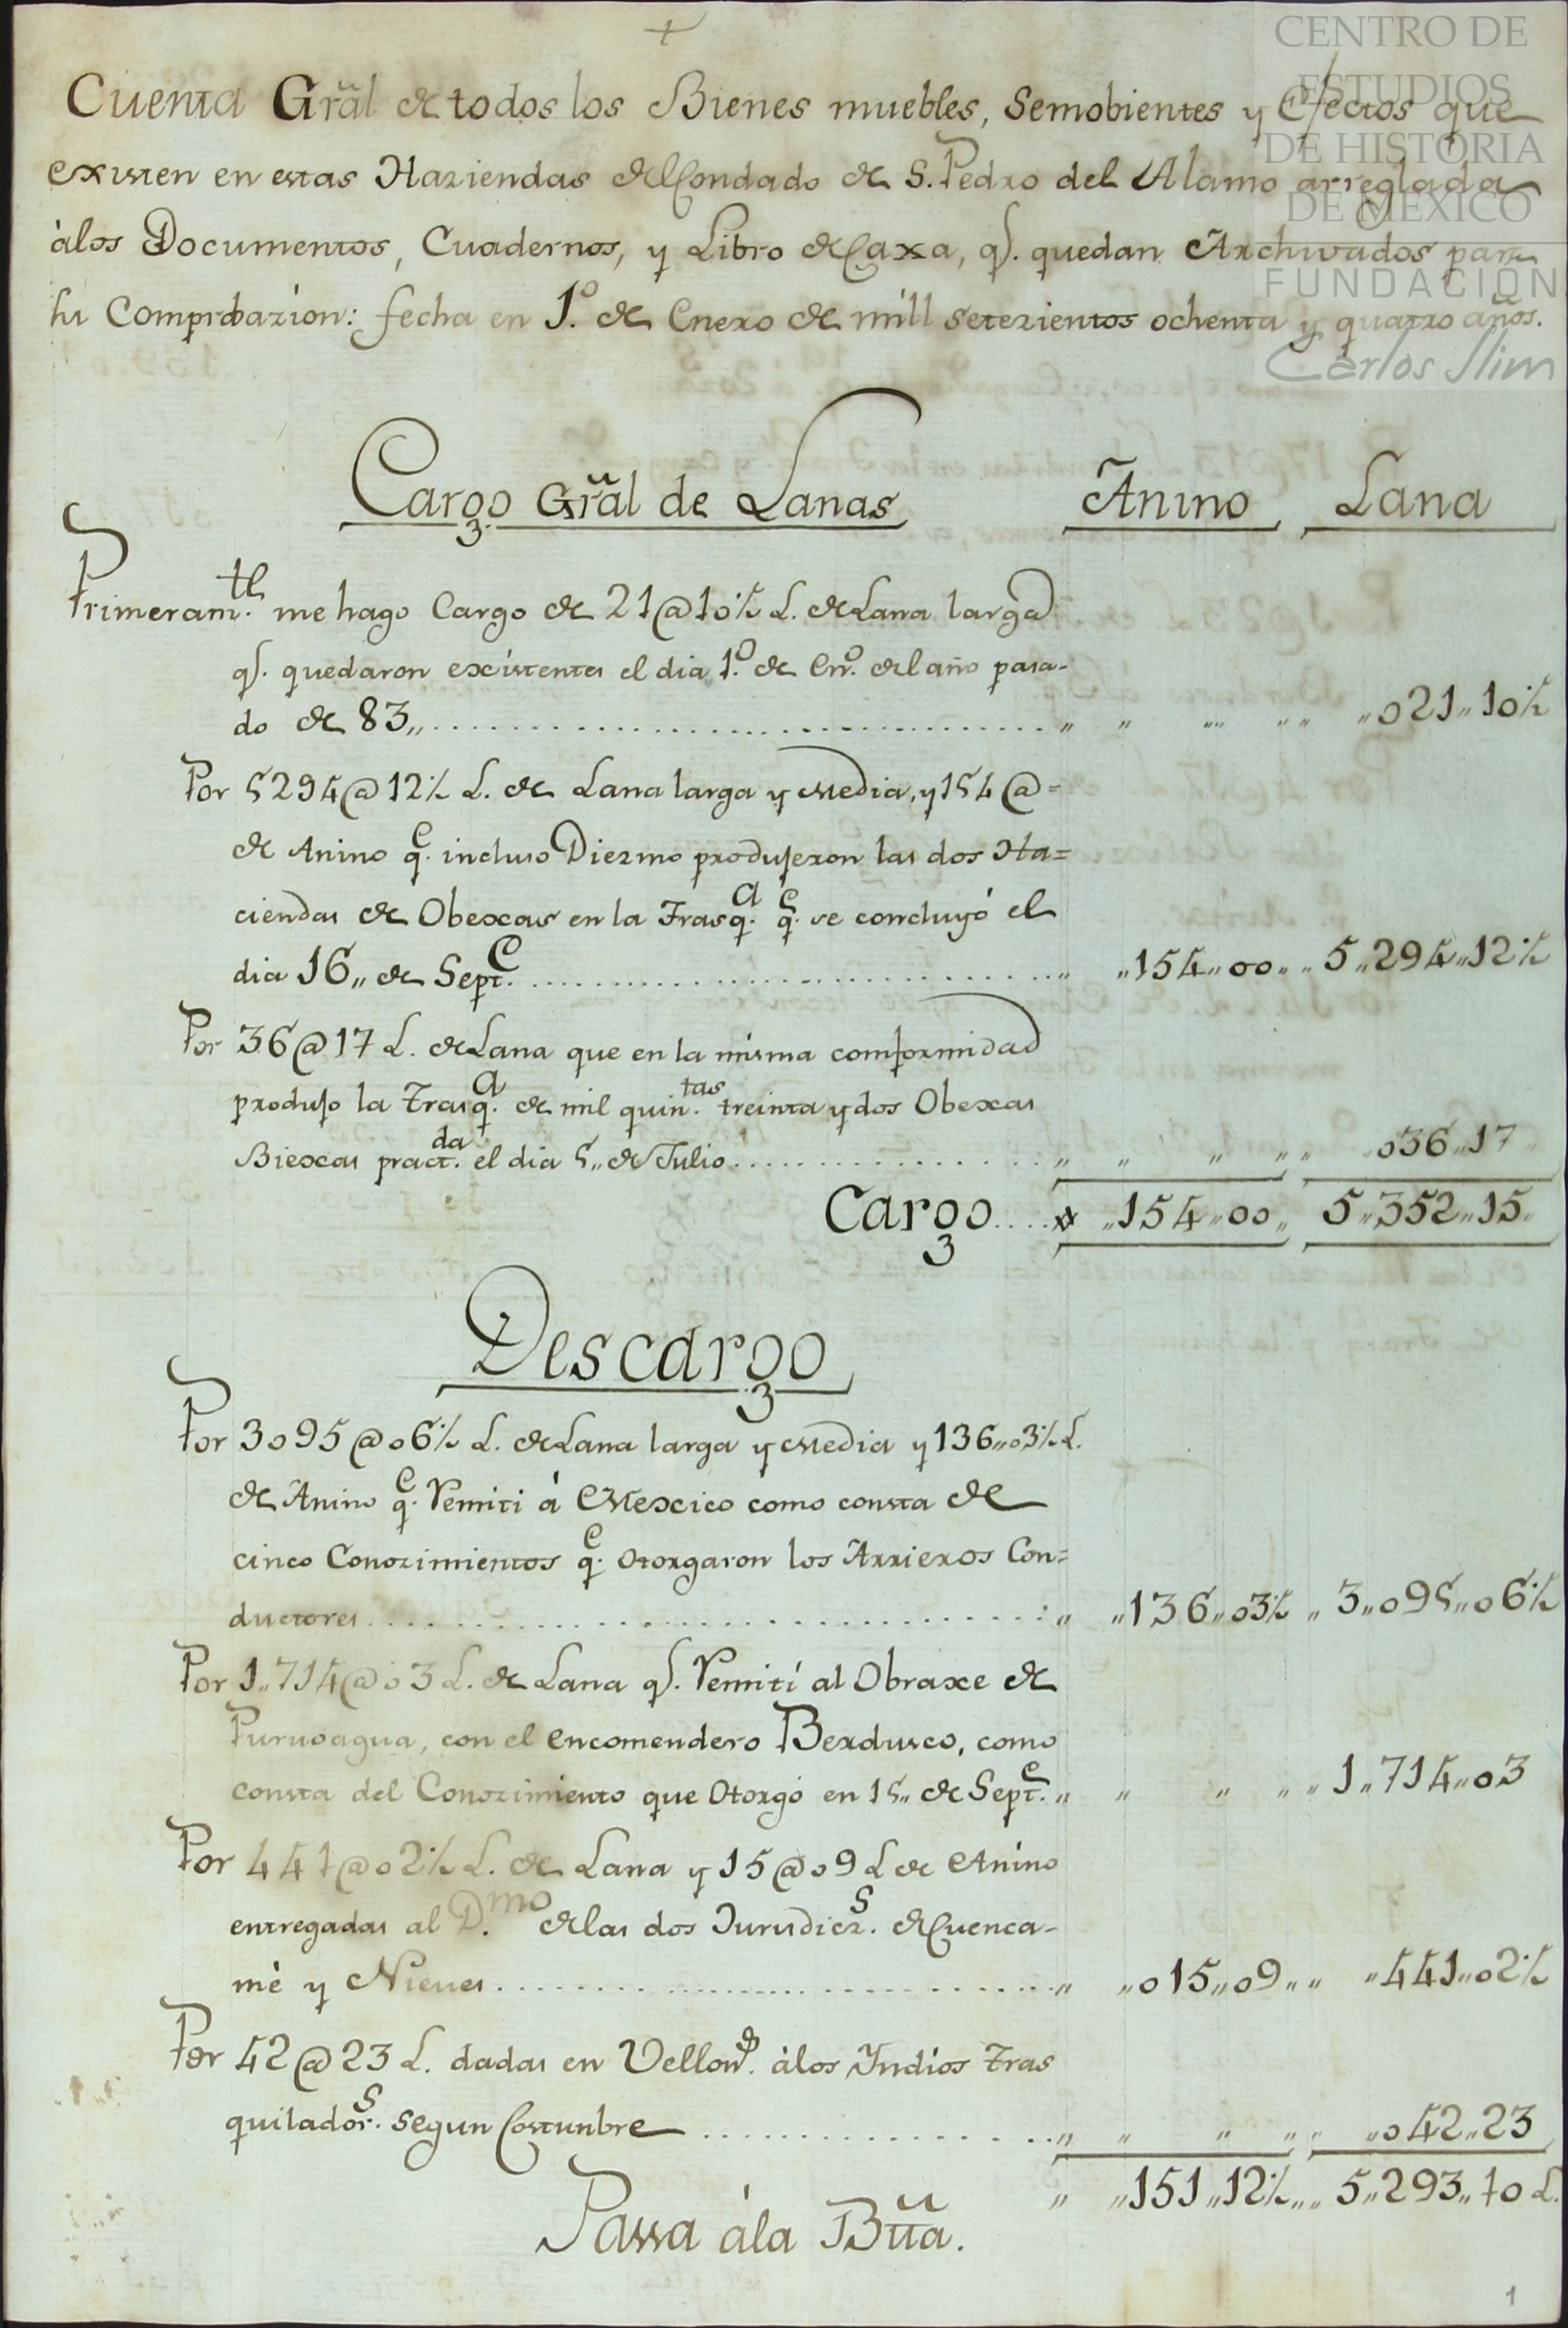 +
CENTRO DE
ESTUDIOS
DE HISTORIA
DE MEXICO
FUNDACIÓN
Carlos Slim
Cuenta Gräl de todos los Bienes muebles, Semobientes y Efectos que
existen en estas Haziendas del Condado de S. Pedro del Alamo arreglada
àlos Documentos, Cuadernos, y Libro de Caxa, q̃. quedan Archivados para
su Comprobazion: fecha en 1.º de Enero de mill setezientos ochenta y quatro años.
Cargo Gräl de Lanas Anino Lana
Primeram.te me hago Cargo de 21@10½ L. de Lana larga
q̃. quedaron existentes el dia 1.º de En.º del año pasa-
do de 83,, .......... ,, ,, ,, ,, ,, 021,,10½
Por 5294@12½ L. de Lana larga y Media, y 154@=
de Anino q.e incluso Diezmo produjeron las dos Ha=
ciendas de Obexas en la Trasq.a q.e se concluyó el
dia 16,, de Sept.e .......... ,, ,,154,,00,, ,, 5,,294,,12½
Por 36@17 L. de Lana que en la misma comformidad
produjo la Trasq.a de mil quin.tas treinta y dos Obexas
Biexas pract.da el dia 5,, de Julio .......... ,, ,, ,, ,, ,, 036,,17
Cargo .... ,,154,,00,, 5,,352,,15
Descargo
Por 3095@06½ L. de Lana larga y Media y 136,,03½ L.
de Anino q.e Remiti á Mexcico como consta de
cinco Conozimientos q.e otorgaron los Arrieros Con=
ductores .......... ,, ,,136,,03½ ,, 3,,095,,06½
Por 1,,714@03 L. de Lana q̃. Remití al Obraxe de
Puruoagua, con el encomendero Berdusco, como
consta del Conozimiento que Otorgó en 15,, de Sept.e ,, ,, ,, ,, ,, 1,,714,,03
Por 441@02½ L. de Lana y 15@09 L de Anino
entregadas al D.mo de las dos Jurisdicz.s de Cuenca-
mè y Nieves .......... ,, ,,015,,09,, ,, ,,441,,02½
Por 42@23 L. dadas en Vellon.s àlos Yndios Tras
quilador.s segun Costunbre .......... ,, ,, ,, ,, ,, ,,042,,23
,, ,,151,,12½,, ,, 5,,293,,10 L.
Passa àla Bũa.
1